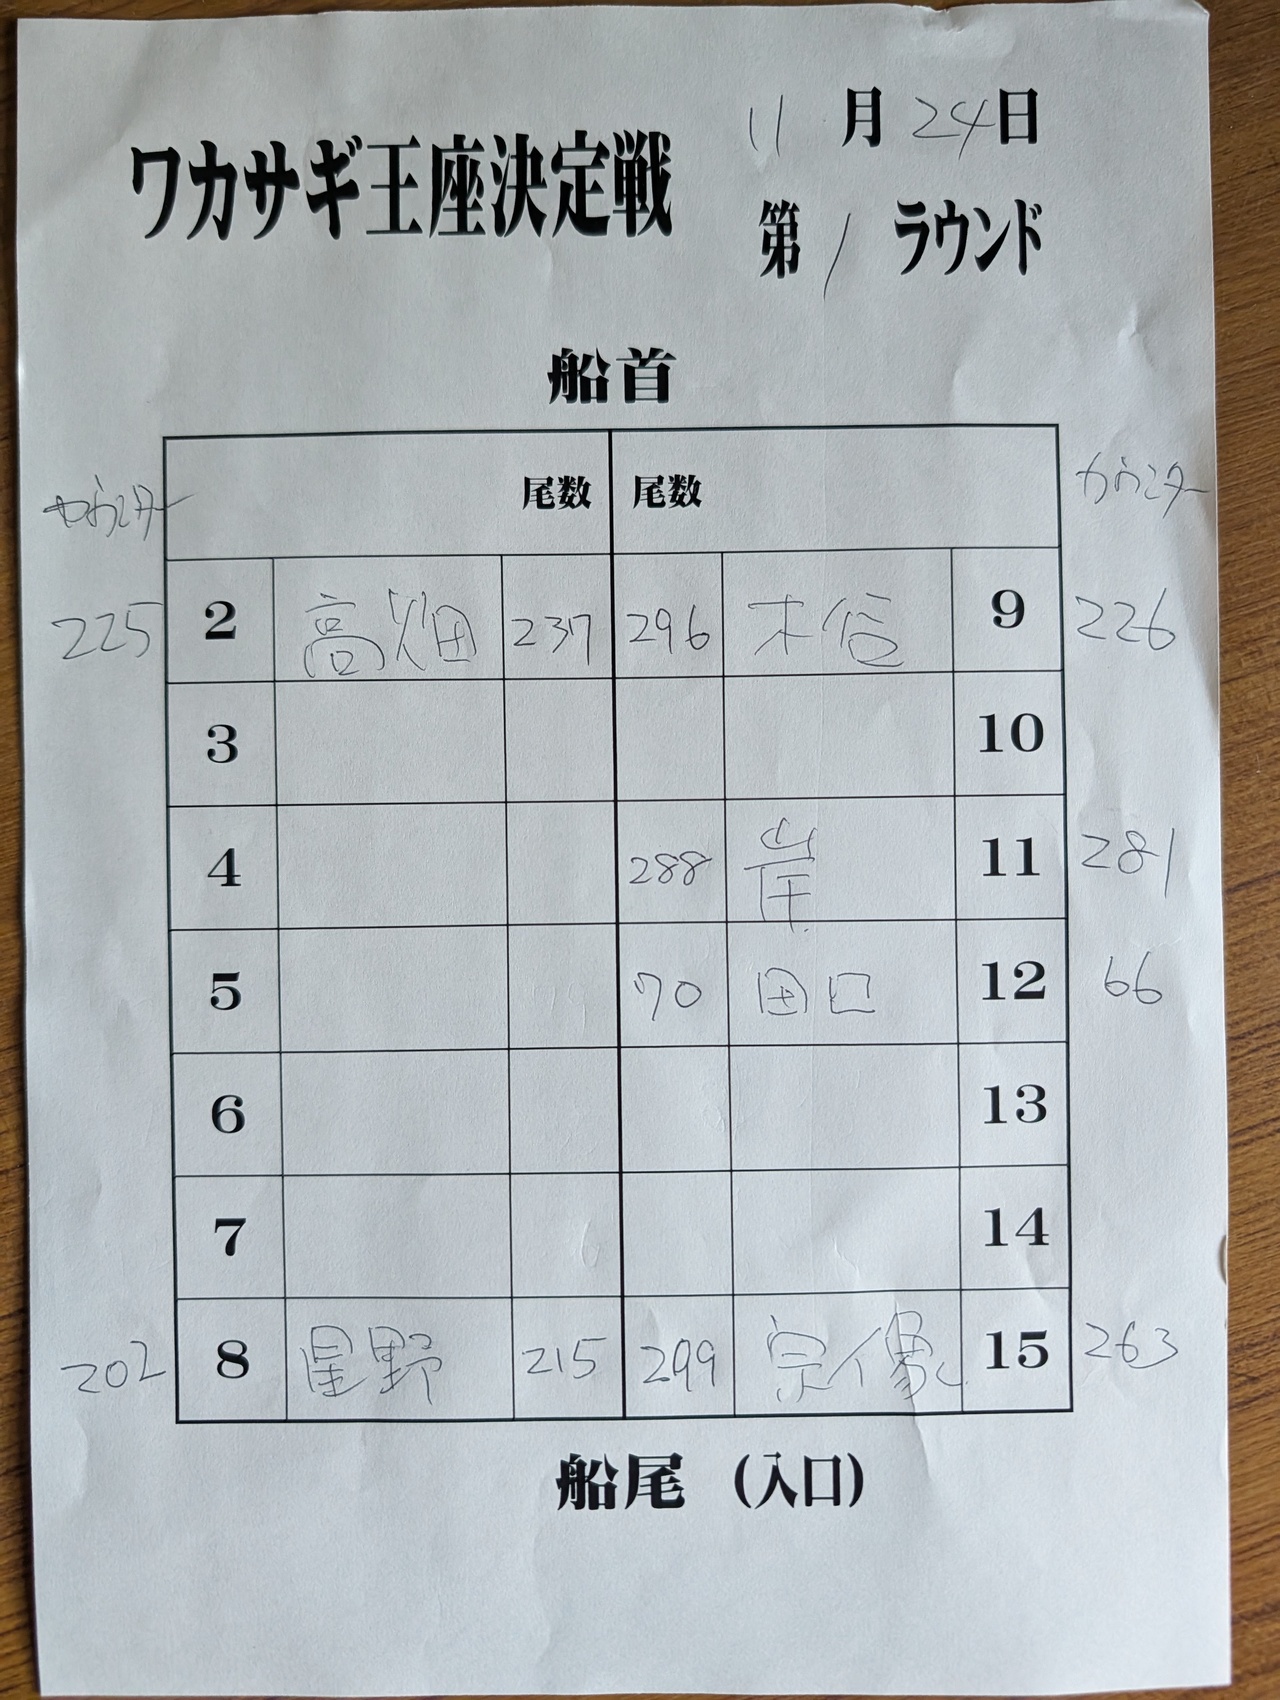 ワカサギ王座決定戦
11月24日
第1ラウンド
船首
カウンター 尾数 尾数 カウンター
225 2 高畑 237 296 木谷 9 226
3 10
4 288 岸 11 281
5 70 田口 12 66
6 13
7 14
202 8 星野 215 299 宗像 15 263
船尾 (入口)